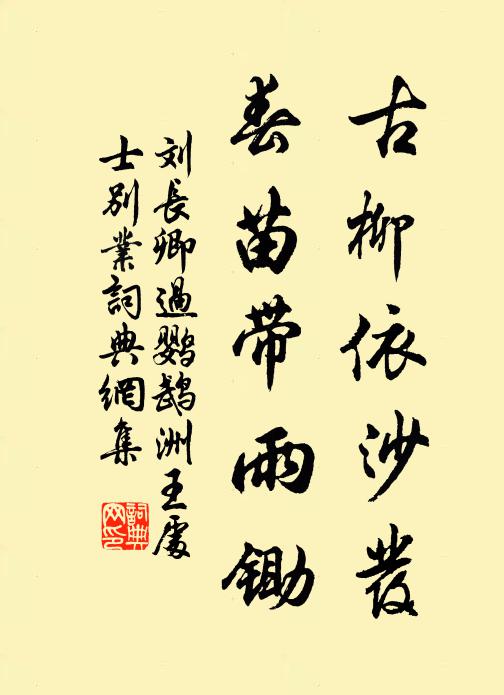 古柳依沙發
春苗帶雨鋤
刘長卿過鹦鹉洲王處
士别業詞典網集
詞典
网印